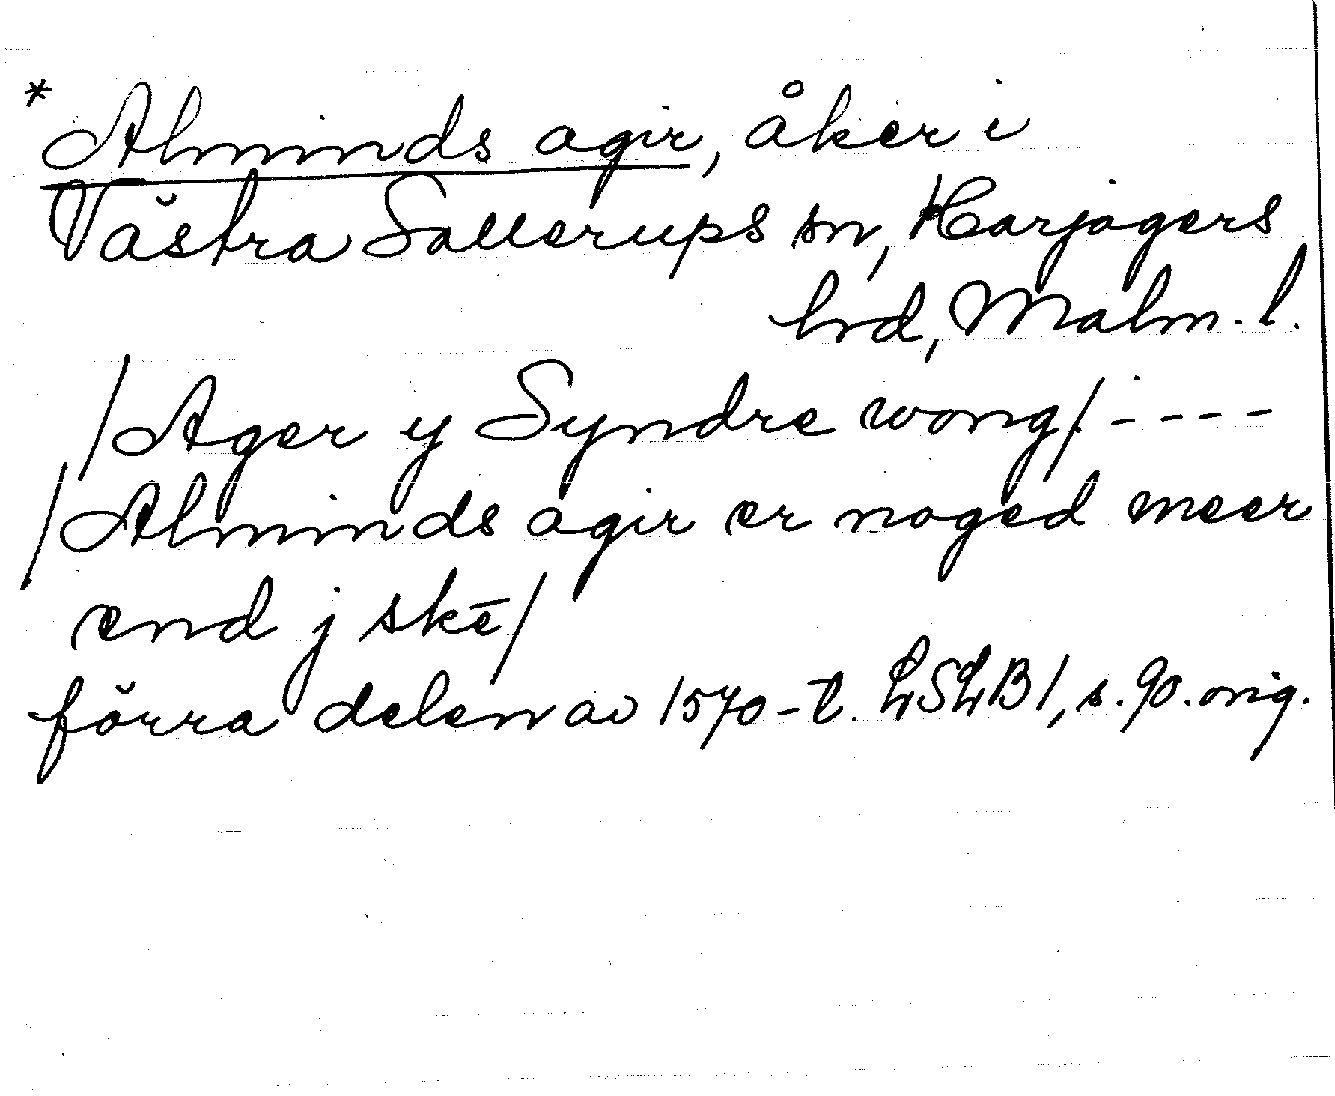 * Alminds agir, åker i
Västra Sallerups sn, Harjagers
hrd, Malm. l.
/Ager y Syndre wong/ - - - -
/Alminds agir er noged meer
end j skē/
förra delen av 1570-t. LSLB 1, s. 90. orig.